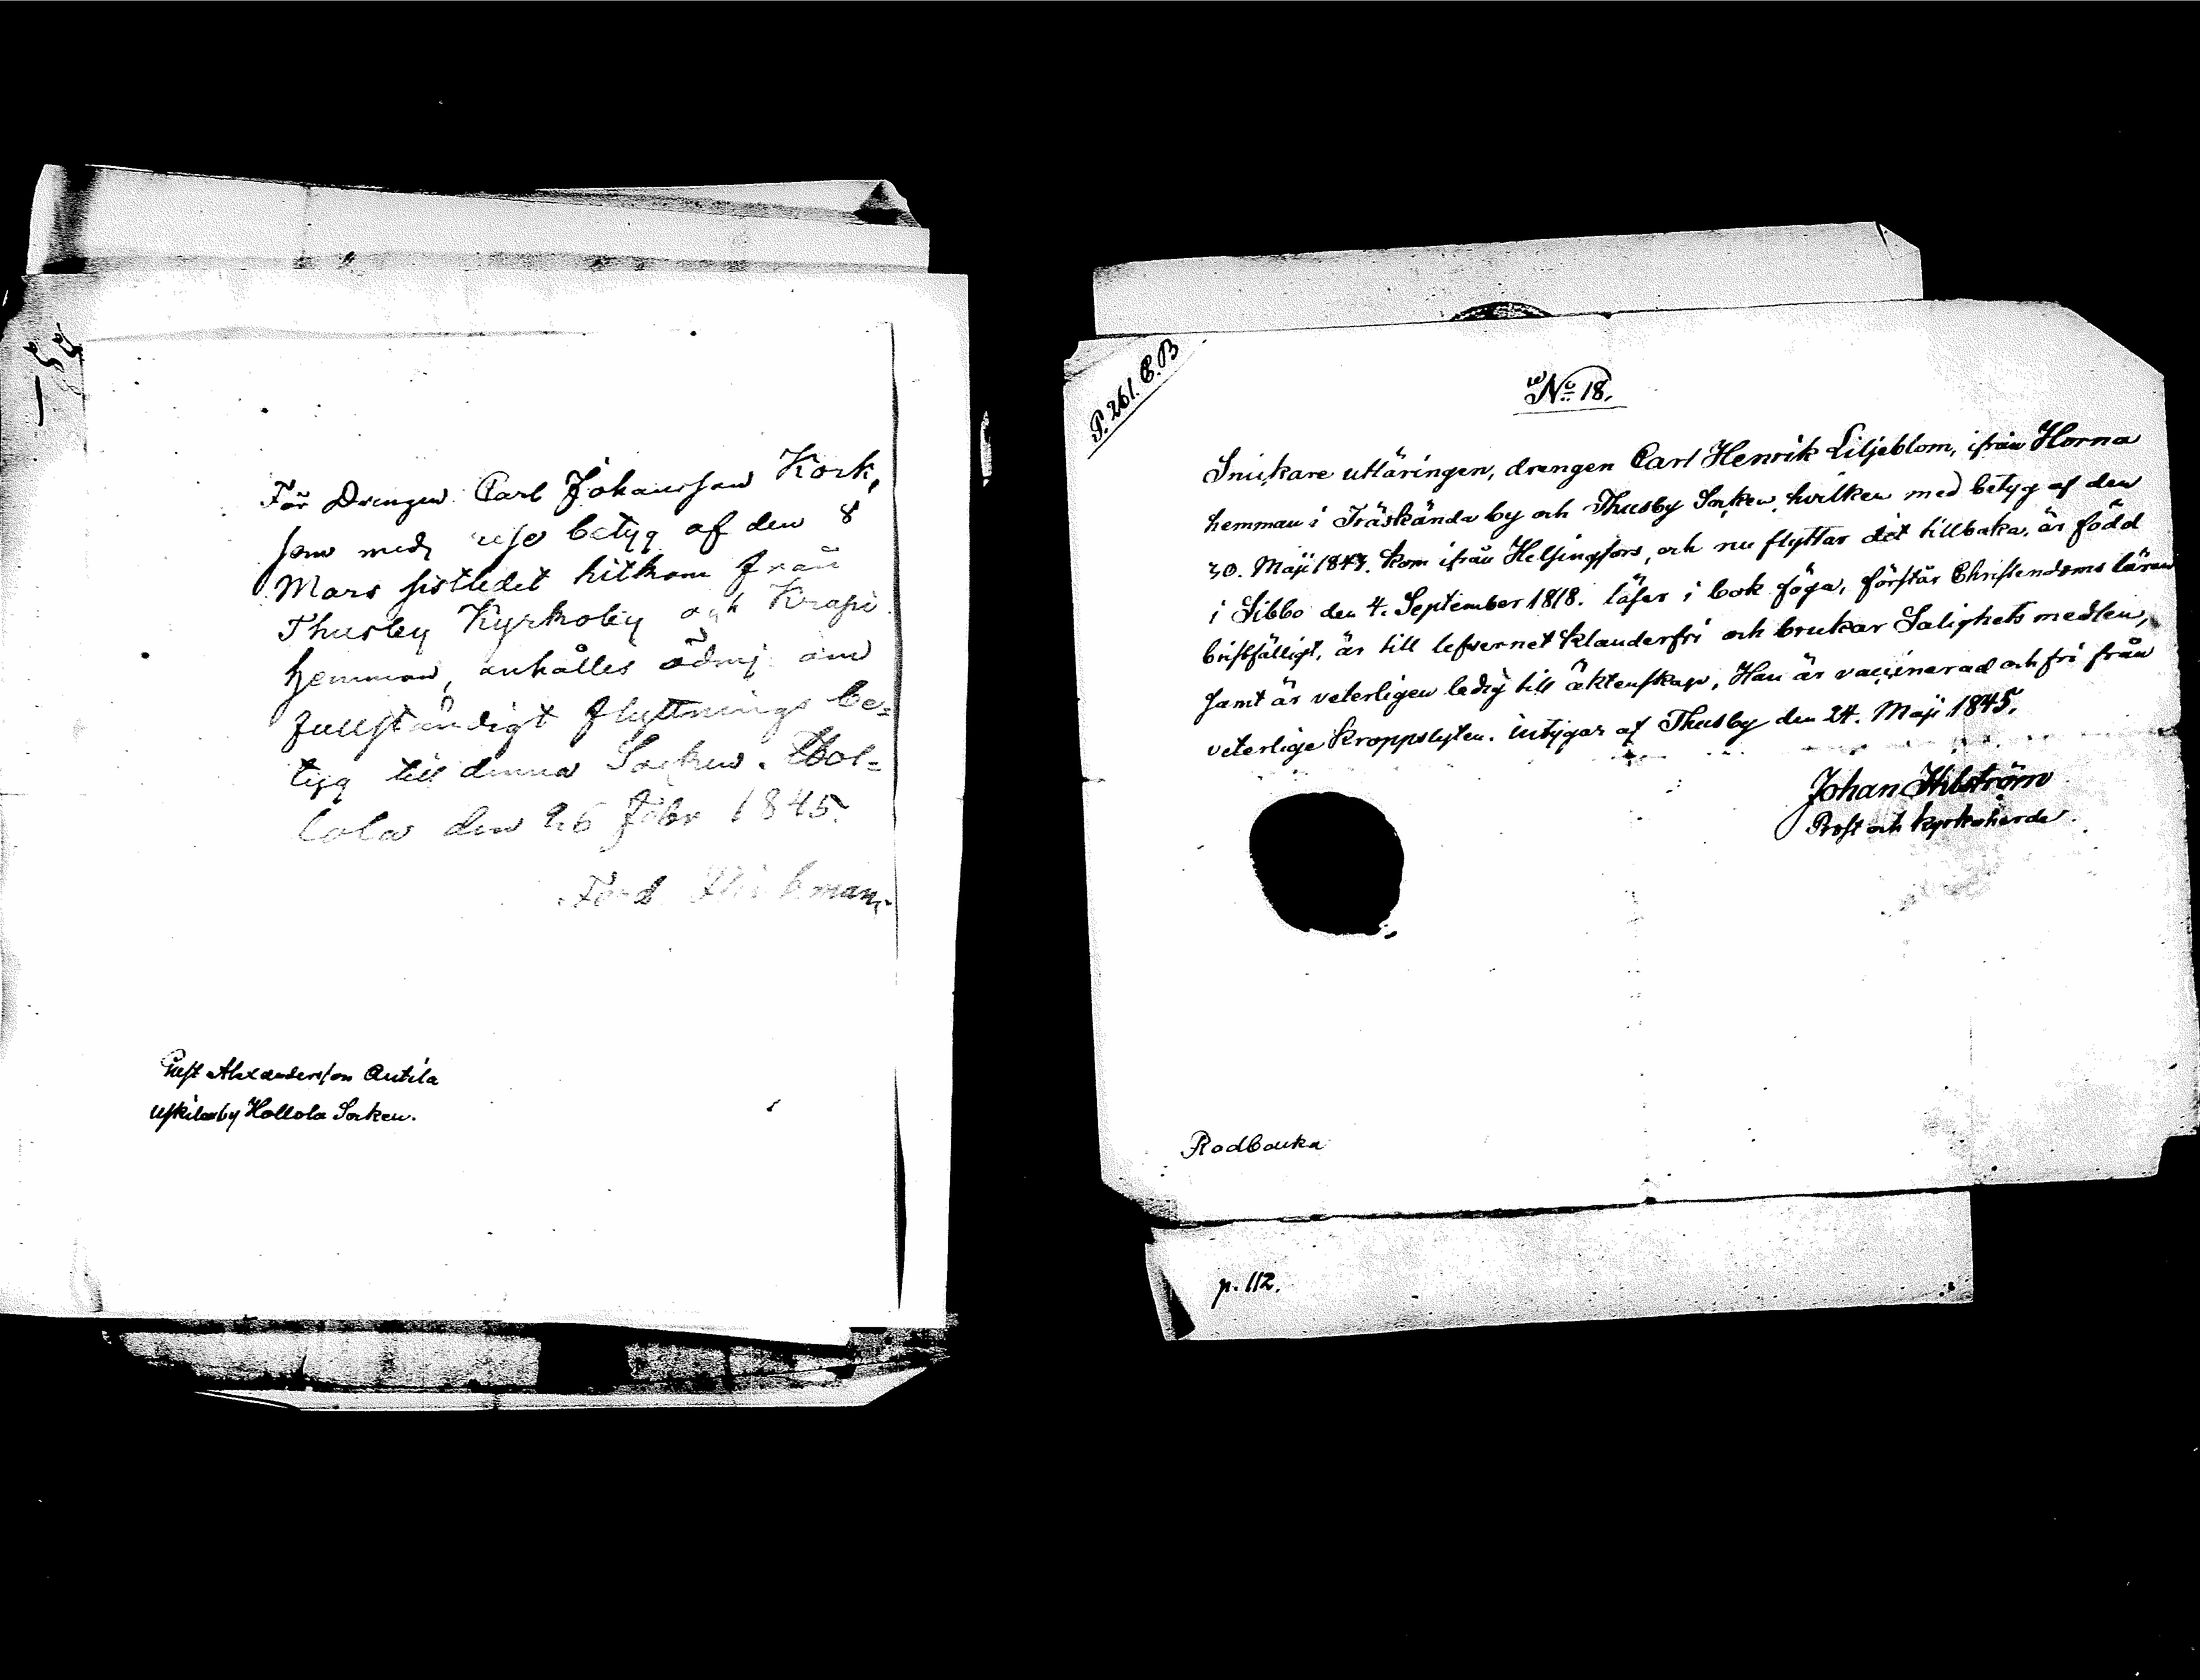 155
För Drengen Carl Johansson Kork,
som med rese betyg af den 8
Mars sistledet hitkom från
Thusby Kyrkoby och Krapi
hemman, anhålles ödmj. om
fullständigt flyttnings be=
tyg till denna Socken. Hol=
lola den 26 Febr 1845.
Ferd
Gust Alexandersson Antila
Uskilaby Hollola Socken.
P. 261. C.B
No 18.
Snickare utläringen, drengen Carl Henrik Liljeblom, ifrån Horna
hemman i Träskända by och Thusby Socken, hvilken med betyg af den
30. Maji 1843. kom ifrån Helsingfors, och nu flyttar dit tillbaka, är född
i Sibbo den 4. September 1818. läser i bok föga, förstår Christendoms läran
bristfälligt, är till lefvernet klanderfri och brukar Salighets medlen,
samt är veterligen ledig till äktenskap, Han är vaccinerad och fri från
veterlige kroppslyten. intygar af Thusby den 24. Maji 1845.
Johan Hilström
Prost och kyrkoherde.
Rodbacka
p. 112.